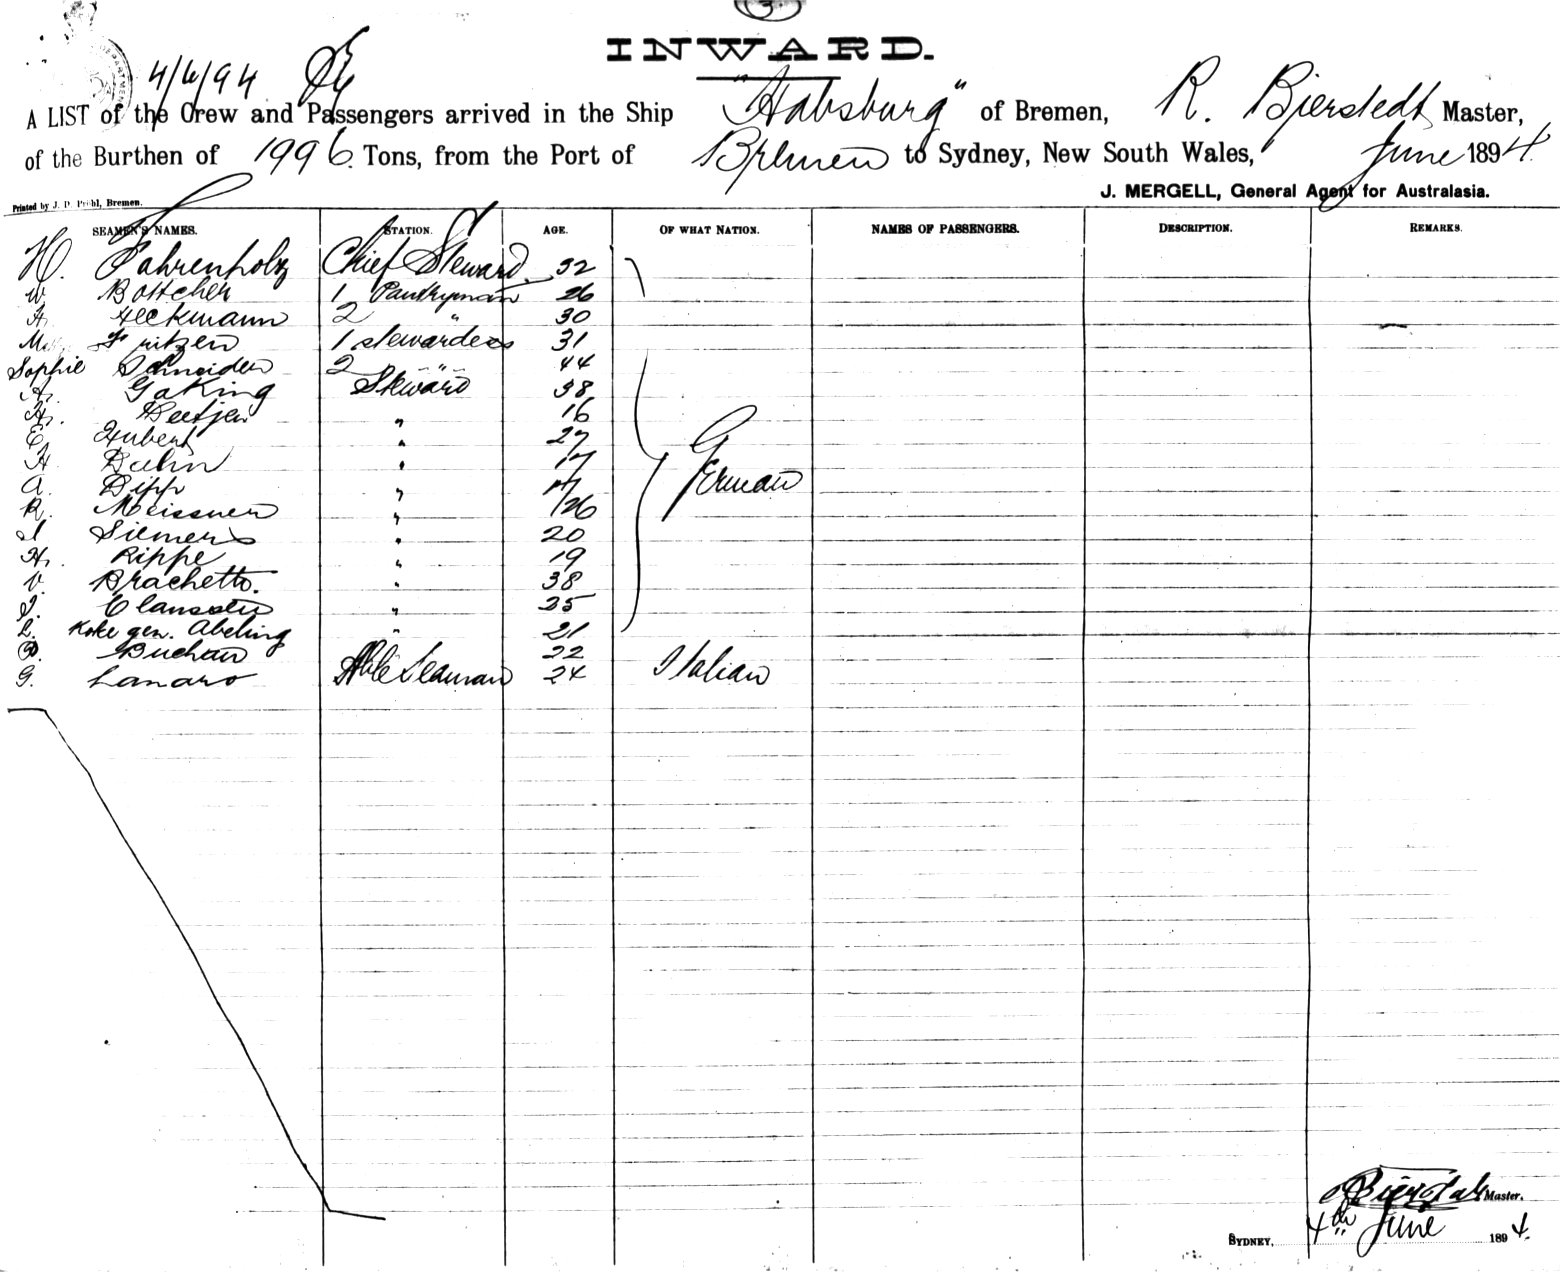 3
INWARD.
4/6/94
A LIST of the Crew and Passengers arrived in the Ship "Habsburg" of Bremen, R. Bjerstedt Master,
of the Burthen of 1996 Tons, from the Port of Bremen to Sydney, New South Wales, June 1894.
J. MERGELL, General Agent for Australasia.
Printed by J. D. Pöhl, Bremen.
SEAMEN'S NAMES. STATION. AGE. OF WHAT NATION. NAMES OF PASSENGERS. DESCRIPTION. REMARKS.
H. Fahrenholz Chief Steward 32
W. Bottcher 1 Pantryman 26
H. Heckmann 2 " 30
M. Fritzen 1 stewardess 31
Sophie Schneider 2 " 44
A. Gaking Steward 38
H. Deetjen " 16
E. Hubert " 27
H. Dahn " 17
A. Dipp " 17 German
R. Meissner " 26
Siemers " 20
H. Rippe " 19
V. Brachetto. " 38
J. Claussen " 25
L. Koke gen. Abeling " 21
Buchan 22
G. Lanaro Able Seaman 24 Italian
Master.
SYDNEY, 4th June 1894.